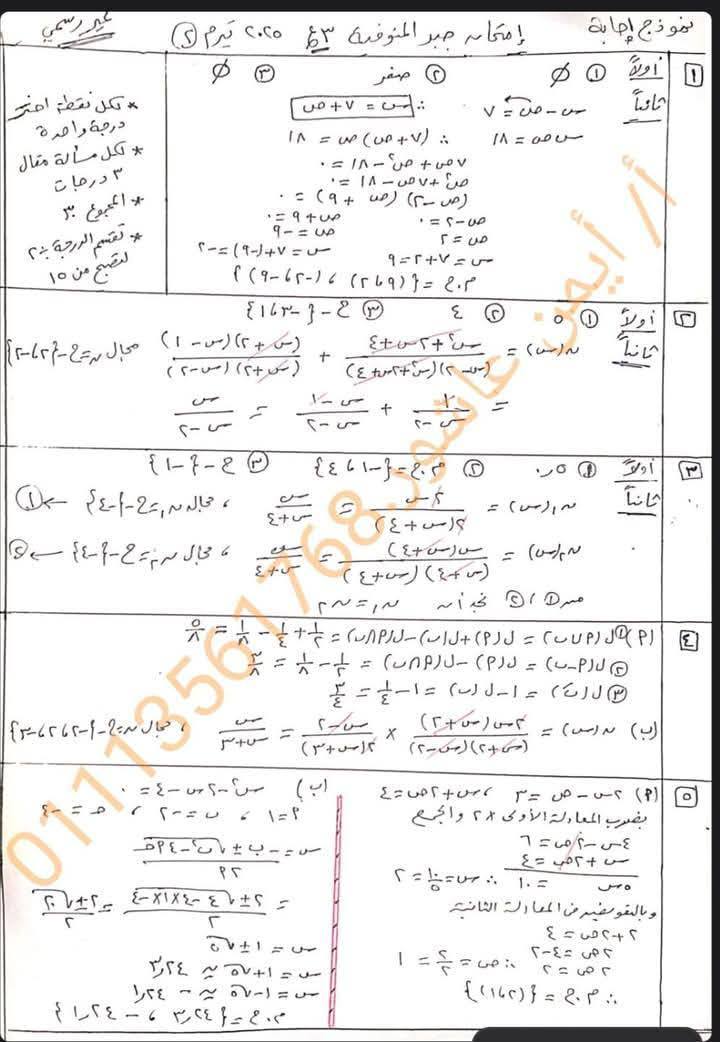 نموذج إجابة
إمتحان جبر المنوفية ٣ع ٢٠٢٥ ترم (٢)
غير رسمي
١
أولاً ① ∅ ② صفر ③ ∅
ثانياً س - ص = ٧ ∴ س = ٧ + ص
س ص = ١٨ ∴ (٧ + ص) ص = ١٨
٧ص + ص² - ١٨ = ٠
ص² + ٧ص - ١٨ = ٠
(ص - ٢)(ص + ٩) = ٠
ص - ٢ = ٠ ص + ٩ = ٠
ص = ٢ ص = -٩
س = ٧ + ٢ = ٩ س = ٧ + (-٩) = -٢
م.ح = {(٩، ٢)، (-٢، -٩)}
* لكل نقطة اختر
درجة واحدة
* لكل مسألة مقال
٣ درجات
* المجموع ٣٠
* تقسم الدرجة ÷ ٢
لتصبح من ١٥
٢
أولاً ① ٥ ② ٤ ③ ح - {-٣، ١}
ثانياً ن(س) = (س² + ٢س + ٤) / (س - ٢)(س² + ٢س + ٤) + (س + ٢)(س - ١) / (س + ٢)(س - ٢) مجال ن = ح - {٢، -٢}
= ١ / (س - ٢) + (س - ١) / (س - ٢) = س / (س - ٢)
٣
أولاً ① ٥ر٠ ② م.ح = {-١، ٤} ③ ح - {-١}
ثانياً ن₁(س) = ٢س / ٢(س + ٤) = س / (س + ٤) ، مجال ن₁ = ح - {-٤} ← ①
ن₂(س) = س(س + ٤) / (س + ٤)(س + ٤) = س / (س + ٤) ، مجال ن₂ = ح - {-٤} ← ②
من ①، ② نجد أن ن₁ = ن₂
٤
(P) ① ل(P∪ب) = ل(P) + ل(ب) - ل(P∩ب) = ١/٢ + ١/٤ - ١/٨ = ٥/٨
② ل(P - ب) = ل(P) - ل(P∩ب) = ١/٢ - ١/٨ = ٣/٨
③ ل(بَ) = ١ - ل(ب) = ١ - ١/٤ = ٣/٤
(ب) ن(س) = ٢س(س + ٢) / (س + ٢)(س - ٢) × (س - ٢) / ٢(س + ٣) = س / (س + ٣) ، مجال ن = ح - {-٢، ٢، -٣}
٥
(P) ٢س - ص = ٣ ، س + ٢ص = ٤
بضرب المعادلة الأولى × ٢ والجمع
٤س - ٢ص = ٦
س + ٢ص = ٤
٥س = ١٠ ∴ س = ١٠/٥ = ٢
وبالتعويض في المعادلة الثانية
٢ + ٢ص = ٤
٢ص = ٤ - ٢
٢ص = ٢ ∴ ص = ٢/٢ = ١
∴ م.ح = {(٢، ١)}
(ب) س² - ٢س - ٤ = ٠
P = ١ ، ب = -٢ ، حـ = -٤
س = (-ب ± √(ب² - ٤Pحـ)) / ٢P
= (٢ ± √(٤ - ٤×١×-٤)) / ٢ = (٢ ± √٢٠) / ٢
س = ١ ± √٥
س = ١ + √٥ ≈ ٣٫٢٤
س = ١ - √٥ ≈ -١٫٢٤
م.ح = {٣٫٢٤ ، -١٫٢٤}
أ/ أيمن عاشور.01113561768